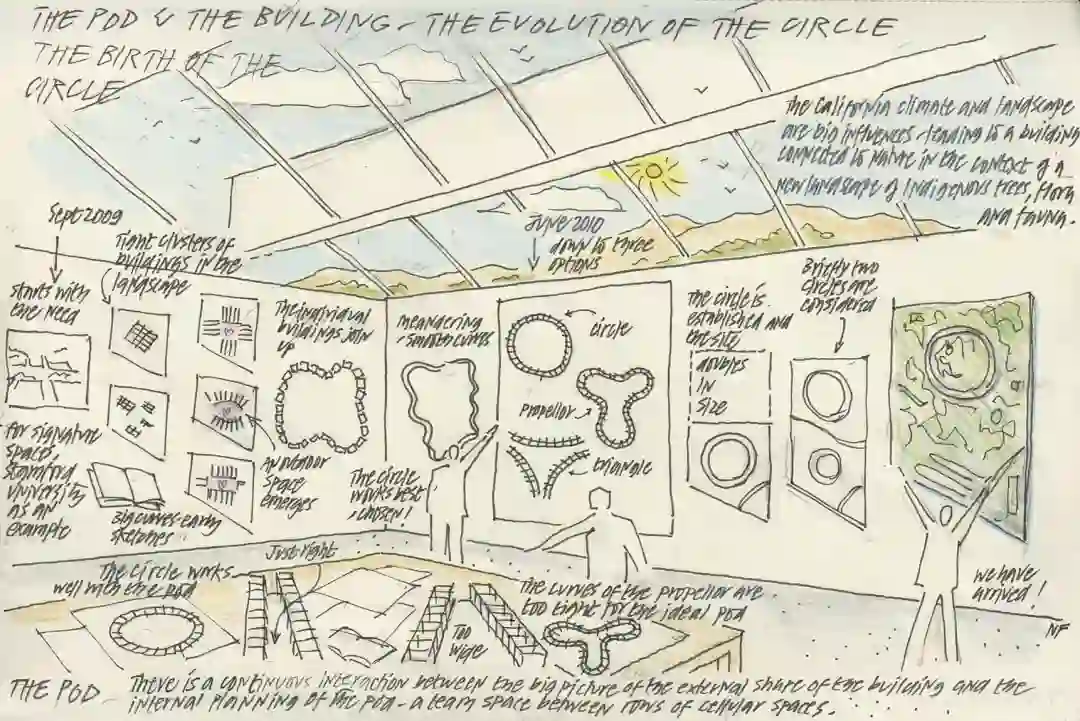 THE POD & THE BUILDING - THE EVOLUTION OF THE CIRCLE
THE BIRTH OF THE
CIRCLE
The California climate and landscape
are big influences - leading to a building
connected to nature in the context of a
new landscape of indigenous trees, flora
and fauna.
Sept 2009
starts with
the need
for signature
spaces,
Stanford
university
as an
example
Tight clusters of
buildings in the
landscape
Big curves - early
sketches
The individual
buildings join
up
An outdoor
space
emerges
meandering
- smooth curves
The circle
works best
, chosen!
June 2010
down to three
options
circle
propellor
triangle
The circle is
established and
the site
doubles
IN
SIZE
Briefly two
circles are
considered
we have
arrived!
NF
The circle works
well with the pod
Just right
Too
wide
The curves of the propellor are
too tight for the ideal pod
THE POD - There is a continuous interaction between the big picture of the external share of the building and the
internal planning of the pod - a team space between rows of cellular spaces.